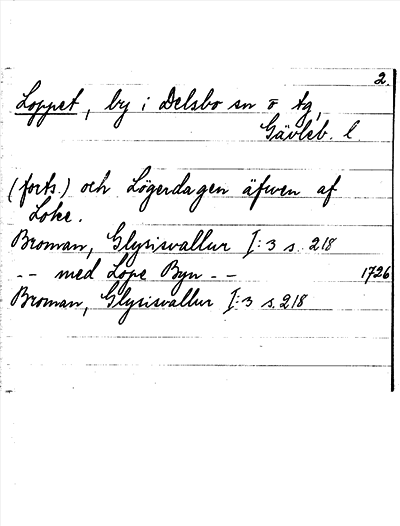 2.
Loppet, by i Delsbo sn o tg,
Gävleb. l
(forts.) och Lögerdagen äfwen af
Loke.
Broman, Glysisvallur I:3 s. 218
-- med Lope Byn -- 1726
Broman, Glysisvallur I:3 s. 218